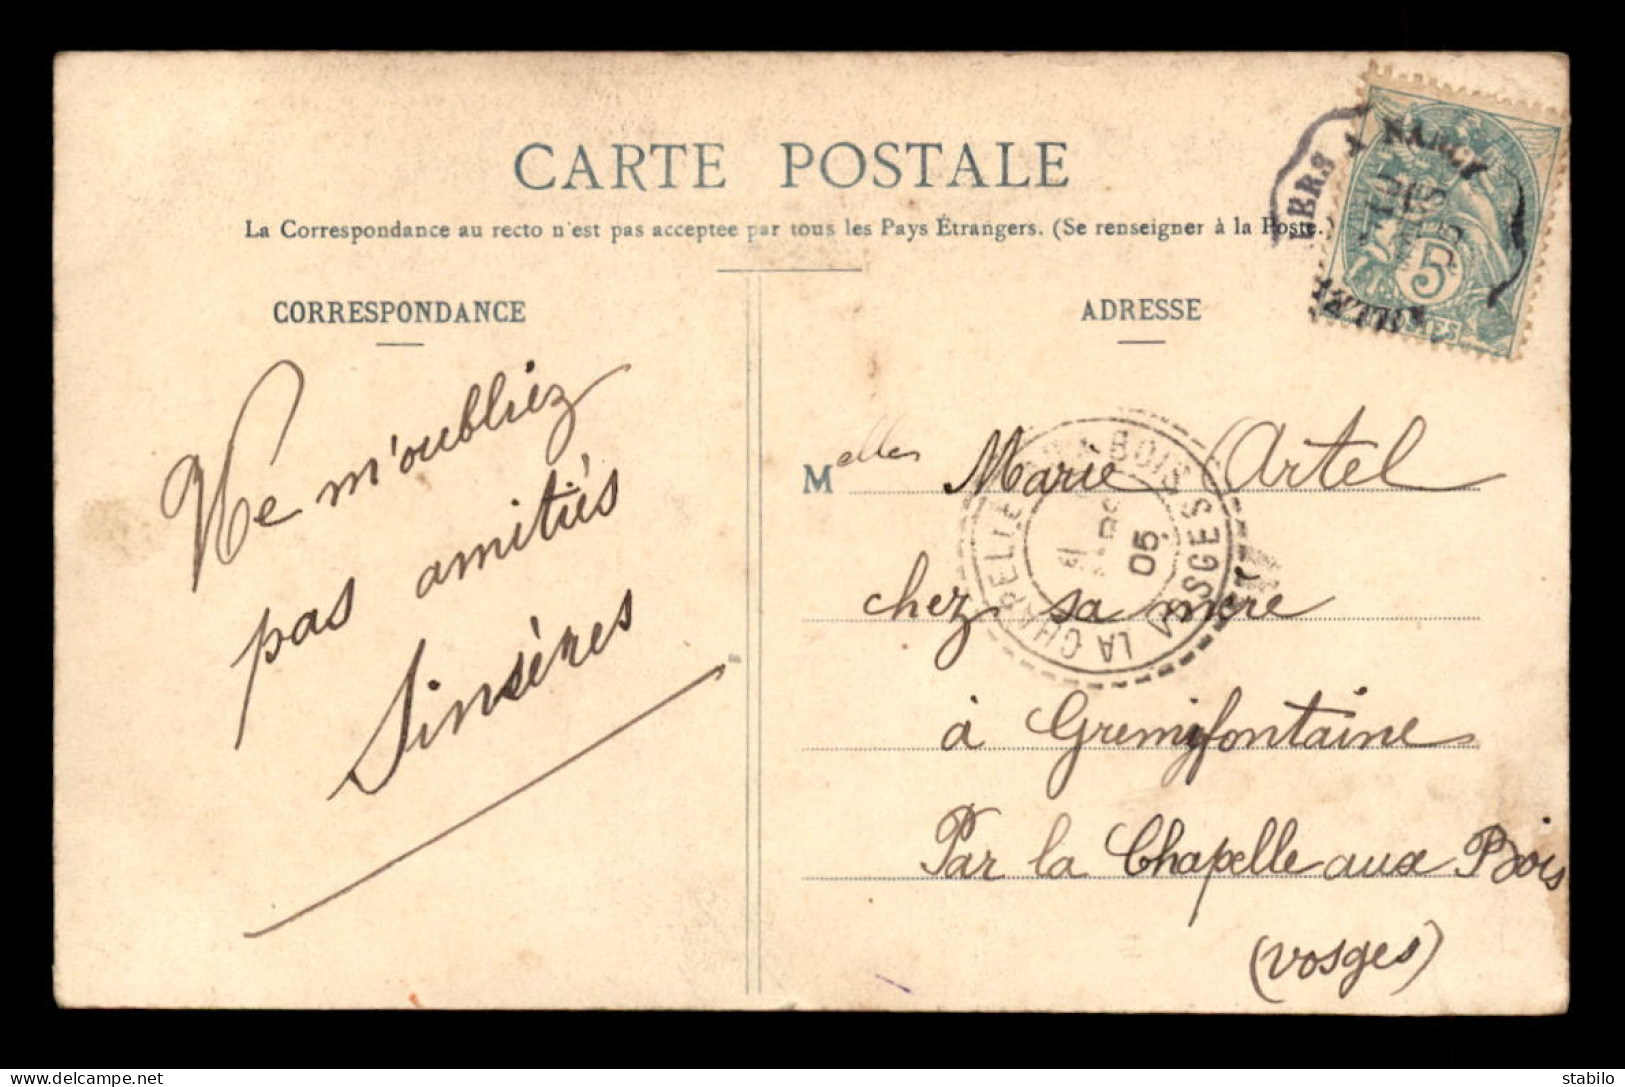 CARTE POSTALE
La Correspondance au recto n'est pas acceptee par tous les Pays Étrangers. (Se renseigner à la Poste.)
CORRESPONDANCE
Ne m'oubliez
pas amitiés
Sinsères
ADRESSE
A NANCY
5
M elles Marie Artel
chez sa mere
à Gremifontaine
Par la Chapelle aux Bois
(Vosges)
LA CHAPELLE BOIS
VOSGES
05
delcampe.net
stabilo